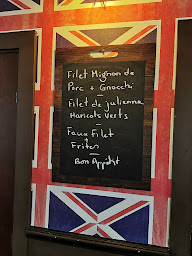 Filet Mignon de
Porc + Gnocchi
Filet de julienne
Haricots Verts
—
Faux Filet
+
Frites
—
Bon Appétit